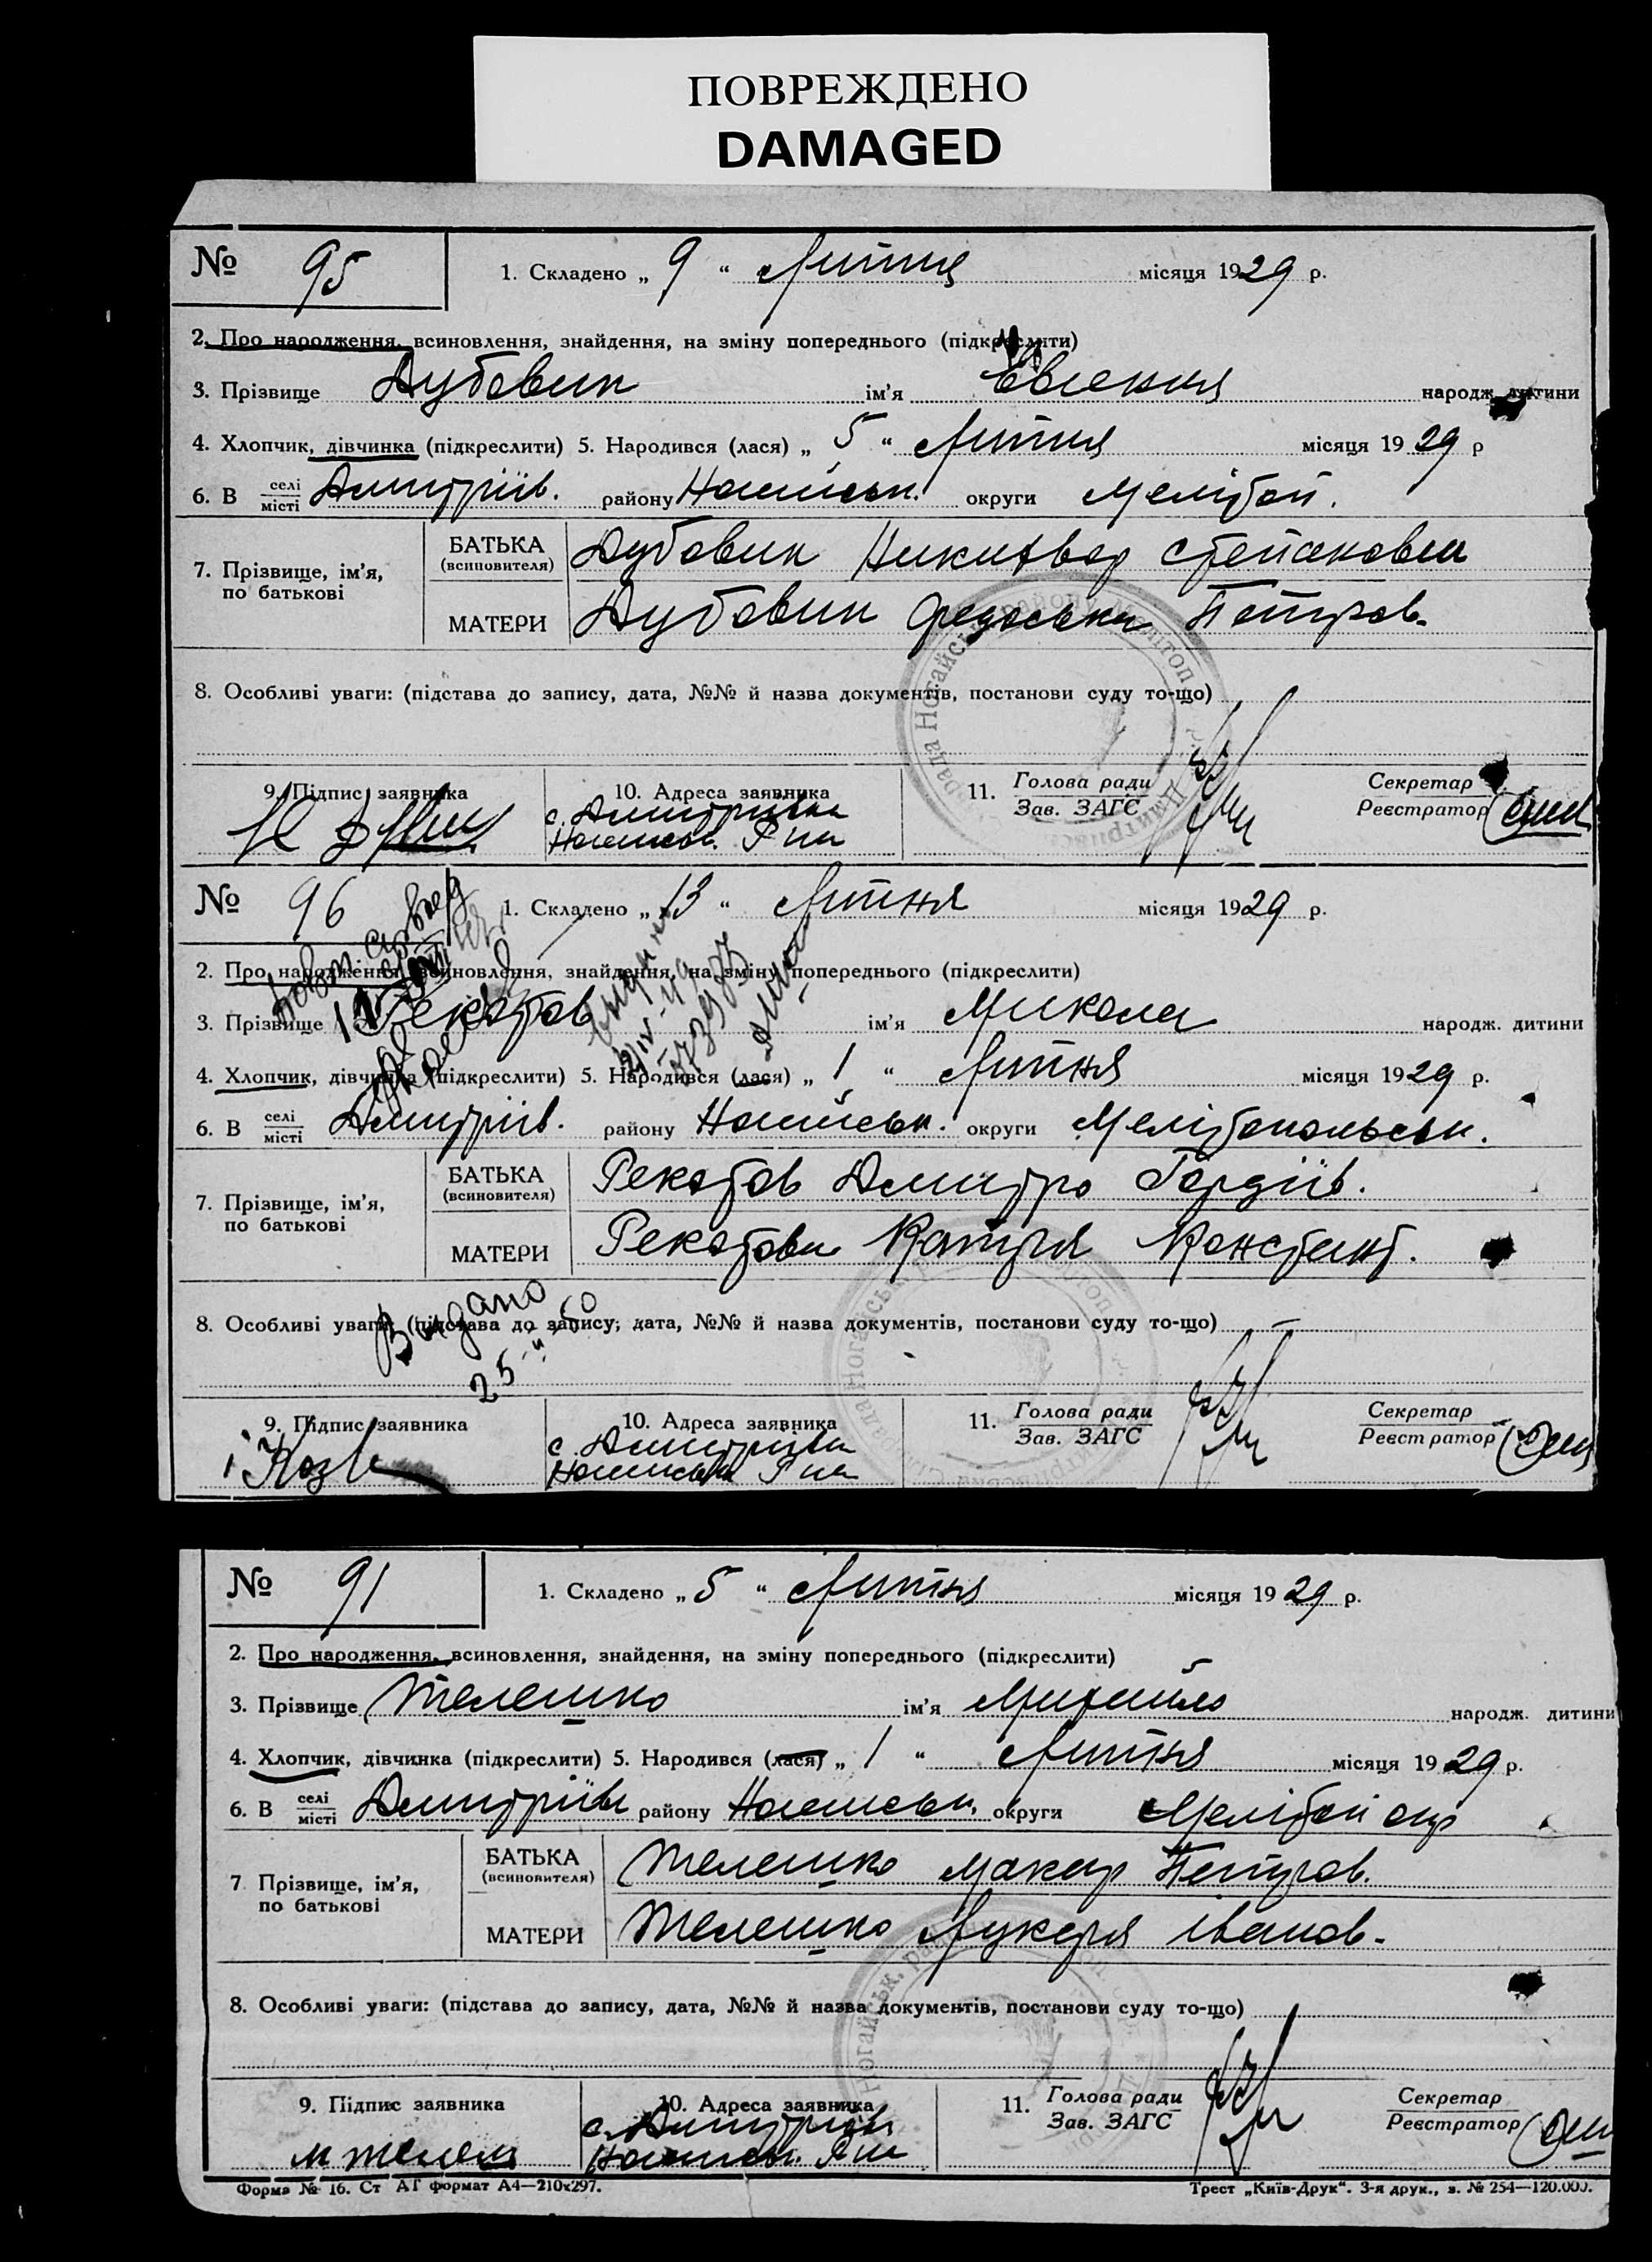 ПОВРЕЖДЕНО
DAMAGED
№ 95 1. Складено „ 9 “ Липня місяця 1929 р.
2. Про народження, всиновлення, знайдення, на зміну попереднього (підкреслити)
3. Прізвище Дубовик ім’я Євгенія народж. дитини
4. Хлопчик, дівчинка (підкреслити) 5. Народився (лася) „ 5 “ Липня місяця 1929 р
6. В селі місті Дмитріїв. району Ногайськ. округи Мелітоп.
7. Прізвище, ім’я, по батькові
БАТЬКА (всиновителя) Дубовик Никифор Степанович
МАТЕРИ Дубовик Федоська Петров.
8. Особливі уваги: (підстава до запису, дата, №№ й назва документів, постанови суду то-що)
9. Підпис заявника
10. Адреса заявника
с. Дмитрівка
Ногайськ. Р-на
11. Голова ради
Зав. ЗАГС
Секретар
Реєстратор
№ 96 1. Складено „ 13 “ Липня місяця 1929 р.
2. Про народження, всиновлення, знайдення, на зміну попереднього (підкреслити)
3. Прізвище Рекотов ім’я Микола народж. дитини
4. Хлопчик, дівчинка (підкреслити) 5. Народився (лася) „ 1 “ Липня місяця 1929 р.
6. В селі місті Дмитріїв. району Ногайськ. округи Мелітопольськ.
7. Прізвище, ім’я, по батькові
БАТЬКА (всиновителя) Рекотов Дмитро Гордіїв.
МАТЕРИ Рекотова Катря Констант.
Видано
8. Особливі уваги: (підстава до запису, дата, №№ й назва документів, постанови суду то-що)
9. Підпис заявника
10. Адреса заявника
с. Дмитрівка
Ногайськ Р-на
11. Голова ради
Зав. ЗАГС
Секретар
Реєстратор
№ 91 1. Складено „ 5 “ Липня місяця 1929 р.
2. Про народження, всиновлення, знайдення, на зміну попереднього (підкреслити)
3. Прізвище Телешко ім’я Михайло народж. дитини
4. Хлопчик, дівчинка (підкреслити) 5. Народився (лася) „ 1 “ Липня місяця 1929 р.
6. В селі місті Дмитріїв району Ногайськ. округи Мелітоп окр
7 Прізвище, ім’я, по батькові
БАТЬКА (всиновителя) Телешко Макар Петров.
МАТЕРИ Телешко Лукеря Іванов.
8. Особливі уваги: (підстава до запису, дата, №№ й назва документів, постанови суду то-що)
9. Підпис заявника
10. Адреса заявника
с. Дмитрів
Ногайськ. Р-на
11. Голова ради
Зав. ЗАГС
Секретар
Реєстратор
Форма № 16. Ст АГ формат А4—210х297. Трест „Київ-Друк“. 3-я друк., з. № 254—120.000.